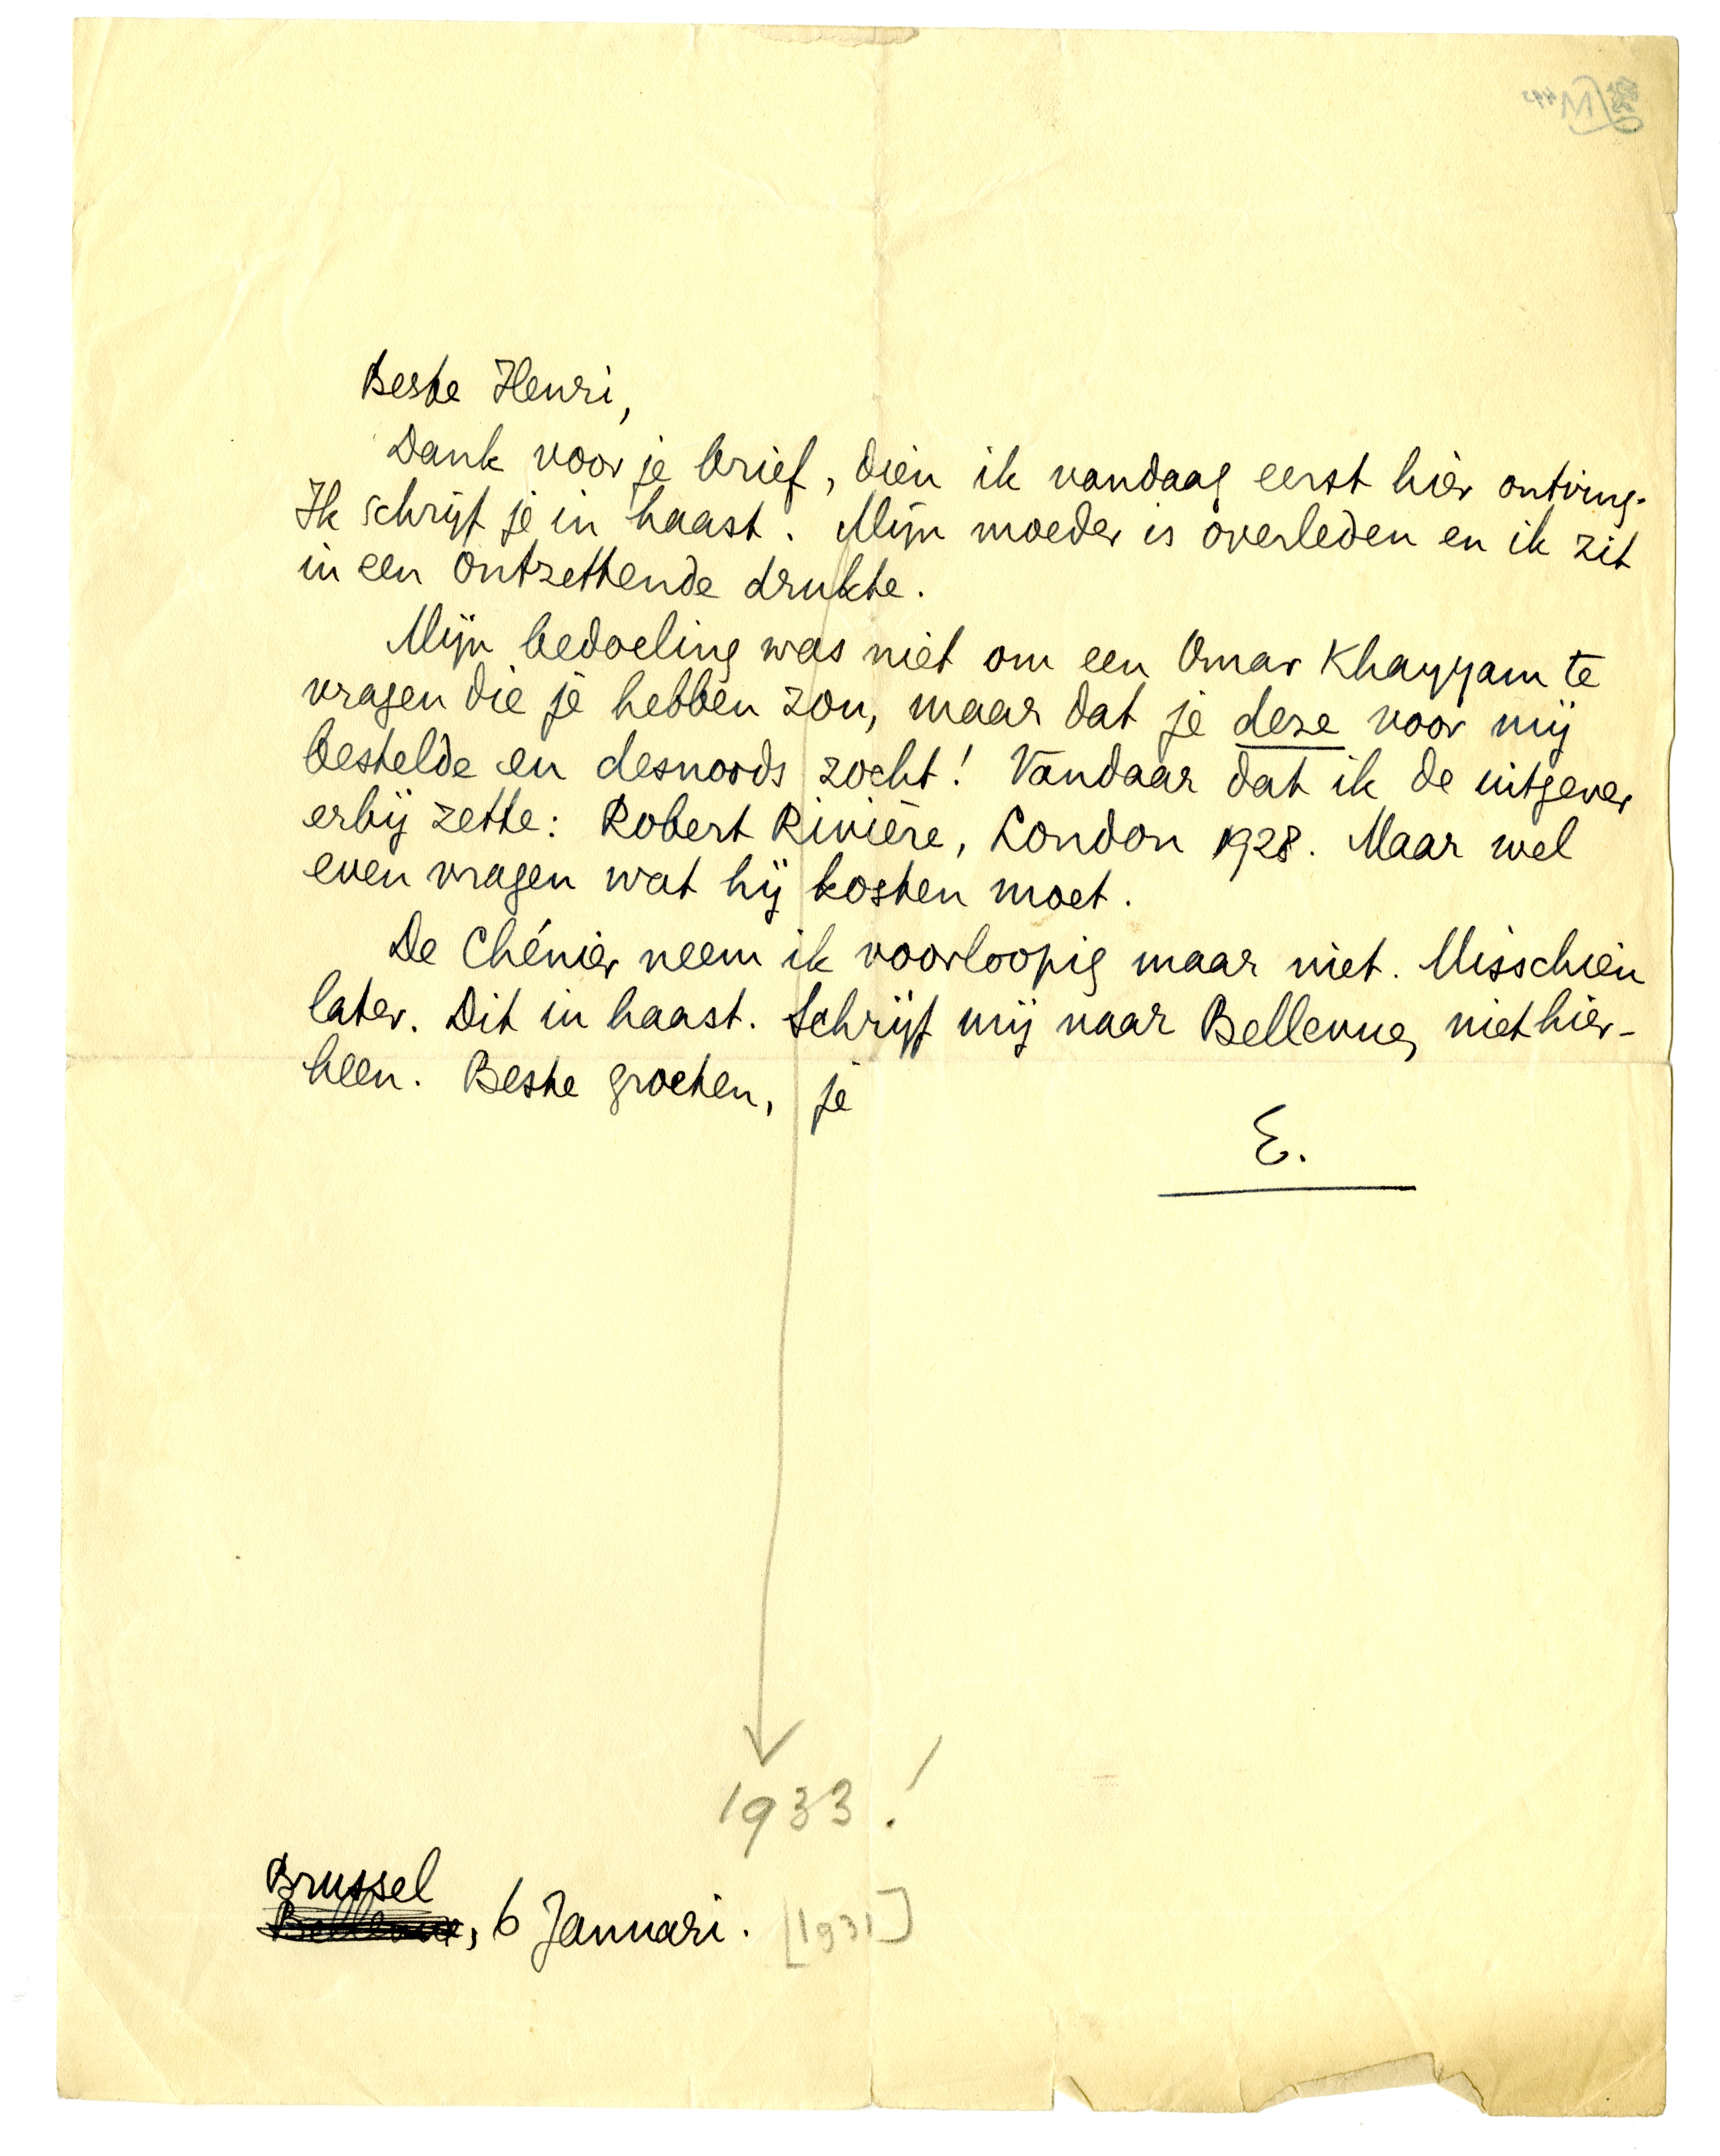 Beste Henri,
Dank voor je brief, dien ik vandaag eerst hier ontving.
Ik schrijf je in haast. Mijn moeder is overleden en ik zit
in een ontzettende drukte.
Mijn bedoeling was niet om een Omar Khayyam te
vragen die je hebben zou, maar dat je deze voor mij
bestelde en desnoods zocht! Vandaar dat ik de uitgever
erbij zette: Robert Rivière, London 1928. Maar wel
even vragen wat hij kosten moet.
De Chénier neem ik voorloopig maar niet. Misschien
later. Dit in haast. Schrijf mij naar Bellevue, niet hier-
heen. Beste groeten, je
E.
1933!
Brussel
Bellevue, 6 Januari. [1931]